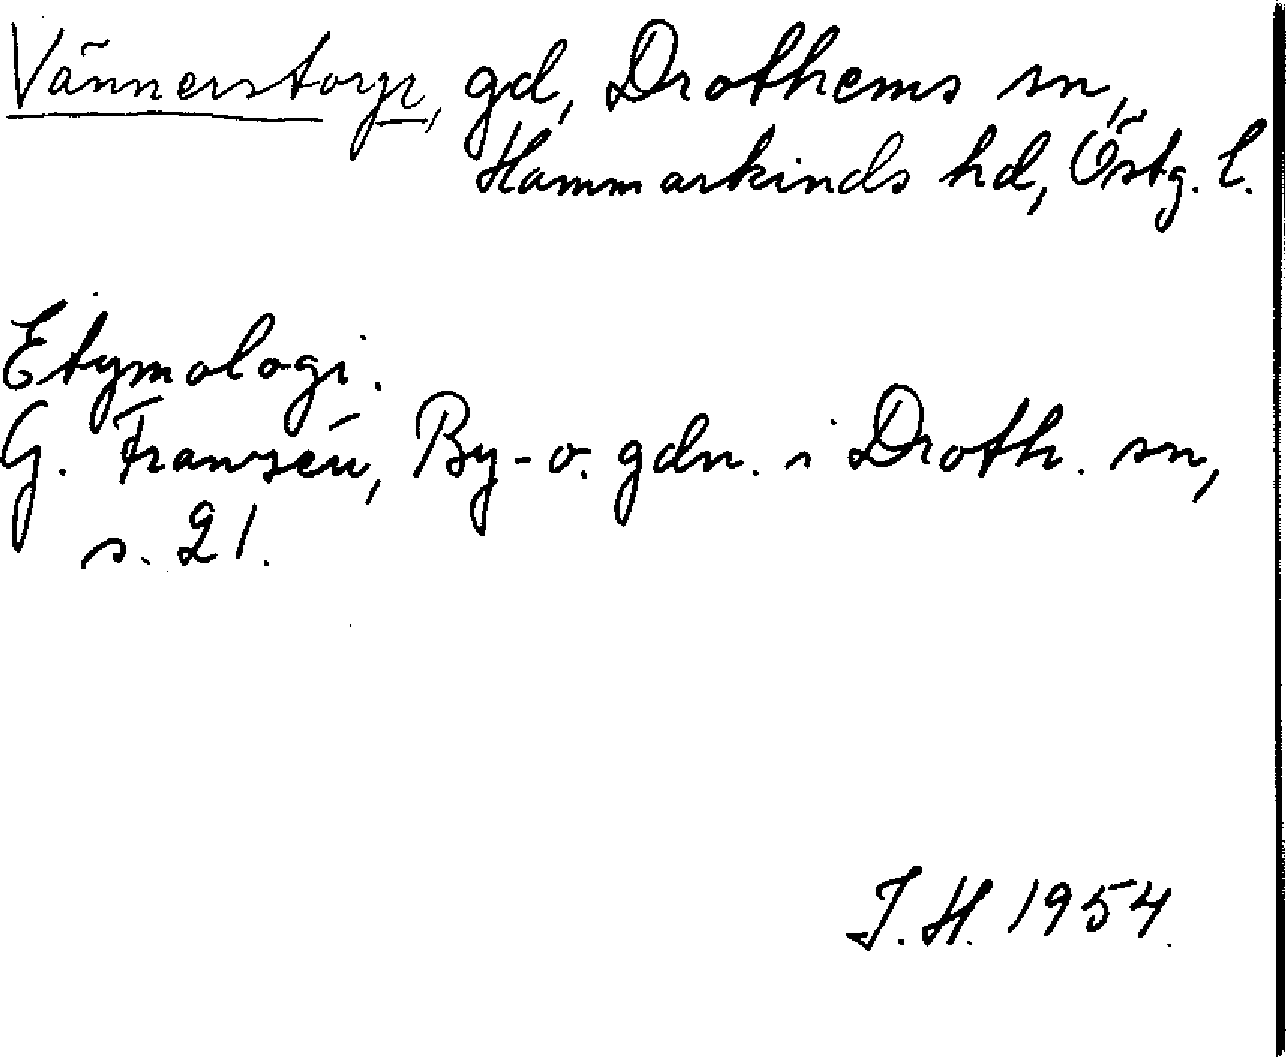 Vännerstorp, gd, Drothems sn,
Hammarkinds hd, Östg. l.
Etymologi.
G. Franzén, By- o. gdn. i Droth. sn,
s. 21.
I.H. 1954.